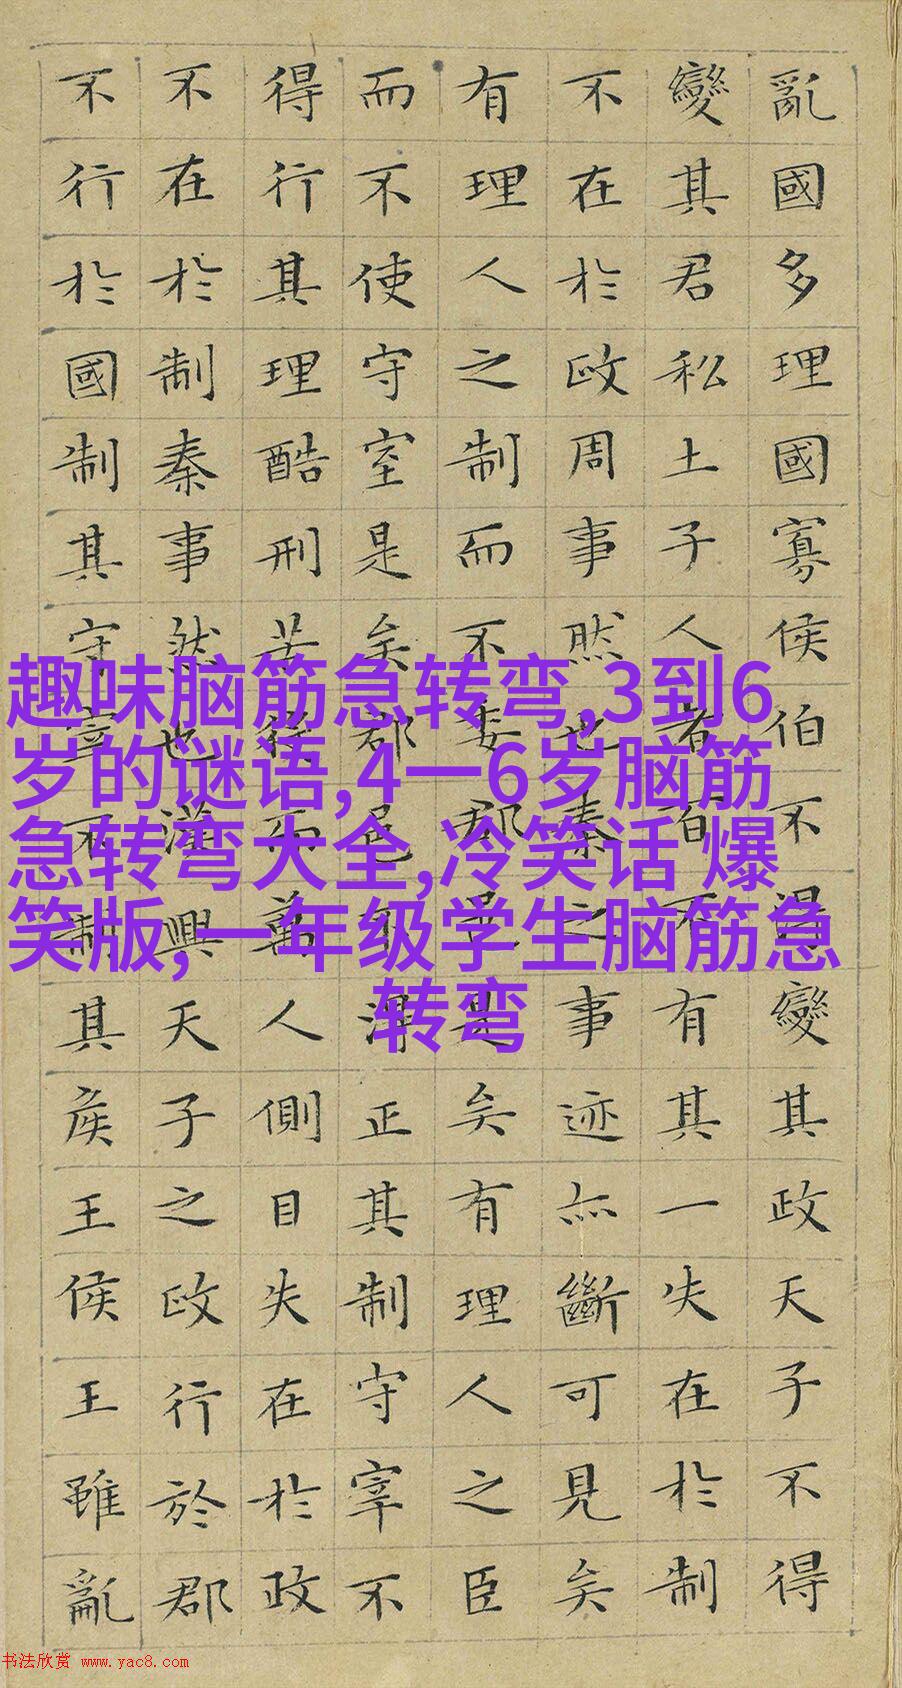 亂國多理國寡侯伯不得變其政天子不得
變其君私土子人者百不有其一失在於制
不在於政周事然也秦之事迹亦斷可見矣
有理人之制而不委郡邑是矣有理人之臣
而不使守宰是矣郡邑不得正其制守宰不
得行其理酷刑苦役而萬人側目失在於政
不在於制秦事然也漢興天子之政行於郡
不行於國制其守宰不制其侯王侯王雖亂
趣味脑筋急转弯,3到6
岁的谜语,4一6岁脑筋
急转弯大全,冷笑话 爆
笑版,一年级学生脑筋急
转弯
书法欣赏 www.yac8.com